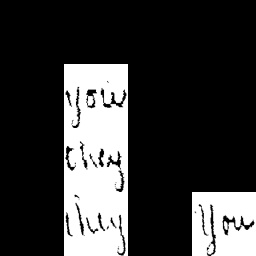 you
they
they you